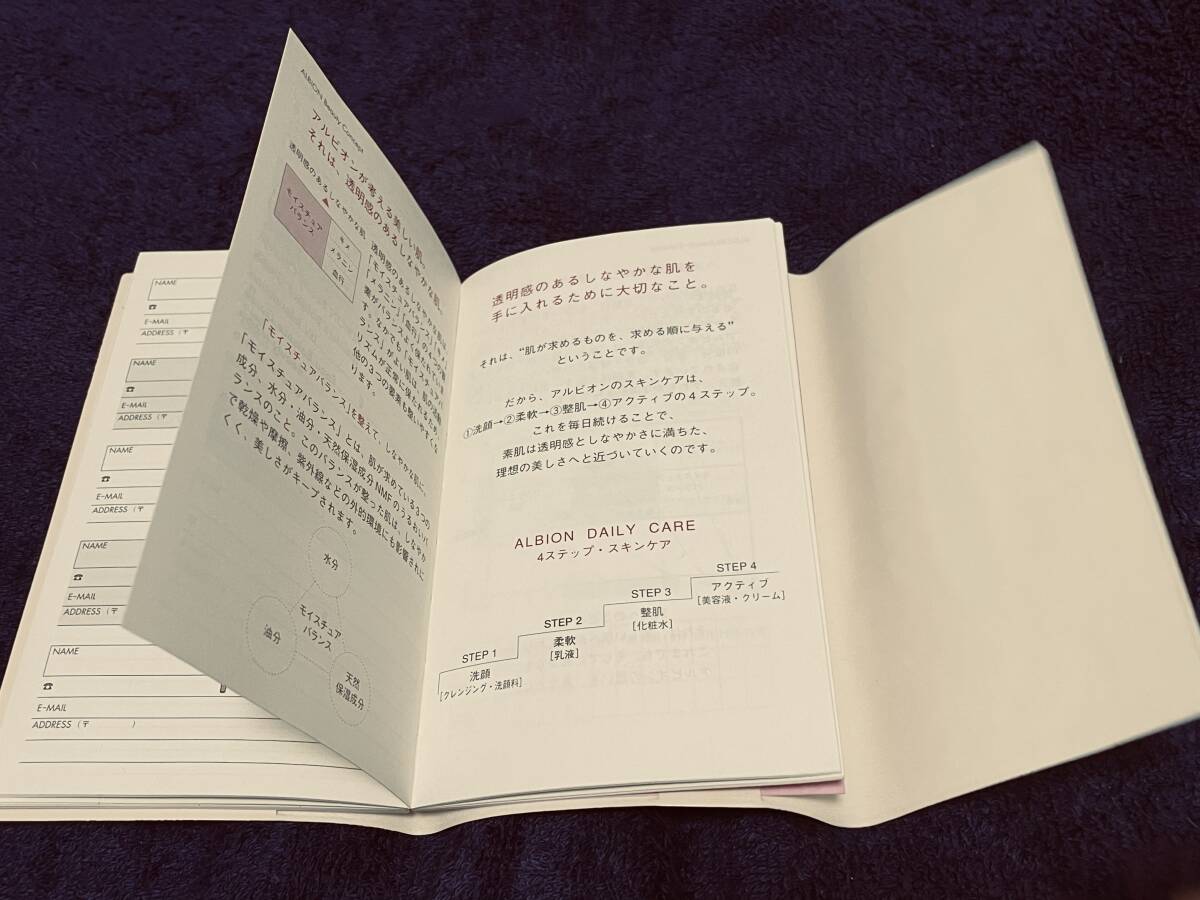 NAME
☎
E-MAIL
ADDRESS (〒
NAME
☎
E-MAIL
ADDRESS (〒
NAME
☎
E-MAIL
ADDRESS (〒
NAME
☎
E-MAIL
ADDRESS (〒
NAME
☎
E-MAIL
ADDRESS (〒 )
ALBION Beauty Concept
アルビオンが考える美しい肌。
それは、透明感のあるしなやかな肌。
透明感のあるしなやかな肌
モイスチュア
バランス
キメ
メラニン
血行
透明感のあるしなやかな肌は
「モイスチュアバランス」「キメ」
「メラニン」「血行」の4つの要
素がバランスよく保たれた肌で
す。なかでも、「モイスチュアバ
ランス」がよい肌は、肌の生まれ
他の3つの要素も整いやすくな
ります。
「モイスチュアバランス」を整えて、しなやかな肌に。
「モイスチュアバランス」とは、肌が求めている3つの
成分、水分・油分・天然保湿成分NMFのうるおいバ
ランスのこと。このバランスが整った肌は、しなやか
で乾燥や摩擦、紫外線などの外的環境にも影響されに
くく、美しさがキープされます。
水分
モイスチュア
バランス
油分
天然
保湿成分
透明感のあるしなやかな肌を
手に入れるために大切なこと。
それは、“肌が求めるものを、求める順に与える”
ということです。
だから、アルビオンのスキンケアは、
①洗顔→②柔軟→③整肌→④アクティブの4ステップ。
これを毎日続けることで、
素肌は透明感としなやかさに満ちた、
理想の美しさへと近づいていくのです。
ALBION DAILY CARE
4ステップ・スキンケア
STEP 1
洗顔
[クレンジング・洗顔料]
STEP 2
柔軟
[乳液]
STEP 3
整肌
[化粧水]
STEP 4
アクティブ
[美容液・クリーム]